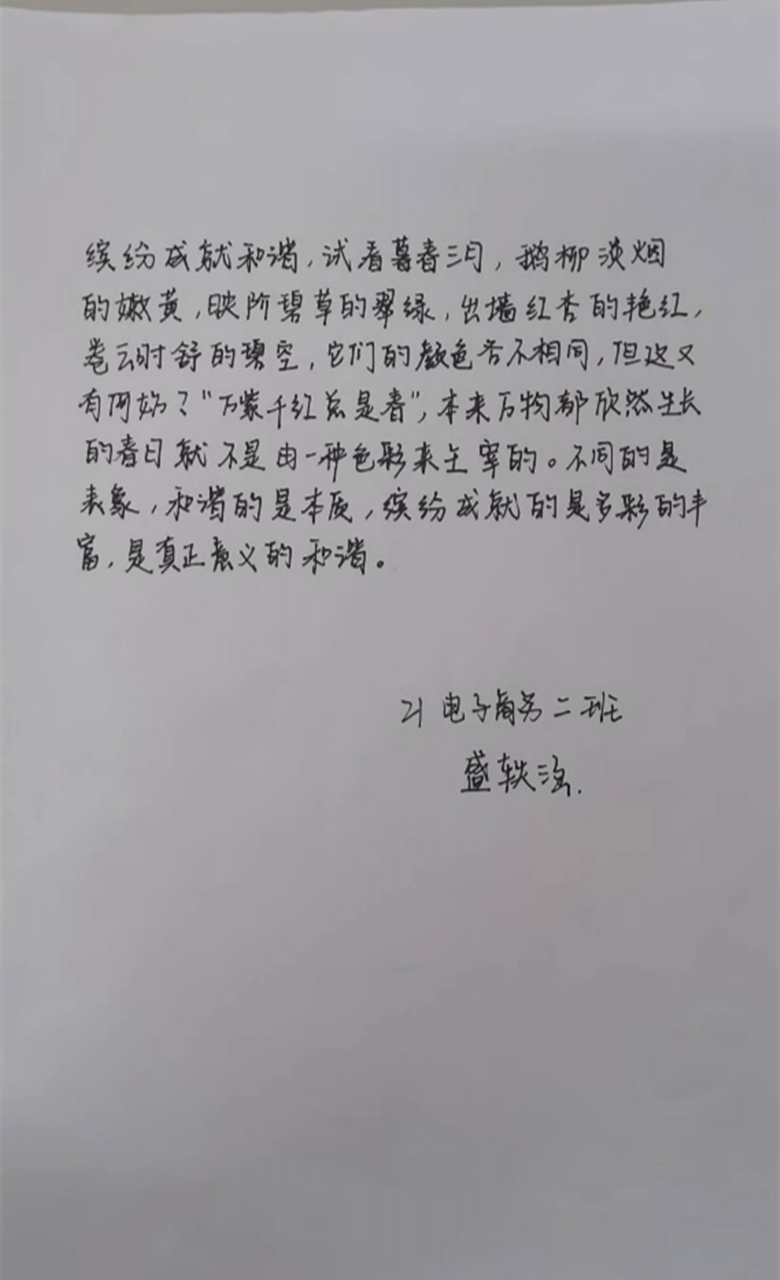 缤纷成就和谐，试看暮春三月，鹅柳淡烟
的嫩黄，映阶碧草的翠绿，出墙红杏的艳红，
卷云时舒的碧空，它们的颜色各不相同，但这又
有何妨？“万紫千红总是春”，本来万物都欣然生长
的春日就不是由一种色彩来主宰的。不同的是
表象，和谐的是本质，缤纷成就的是多彩的丰
富，是真正意义的和谐。
21 电子商务二班
盛轶